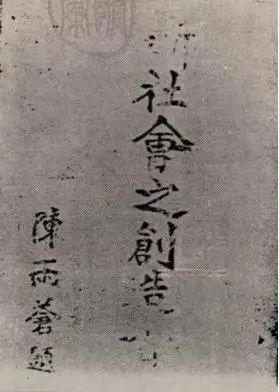 社會之創造
陳雨蒼題